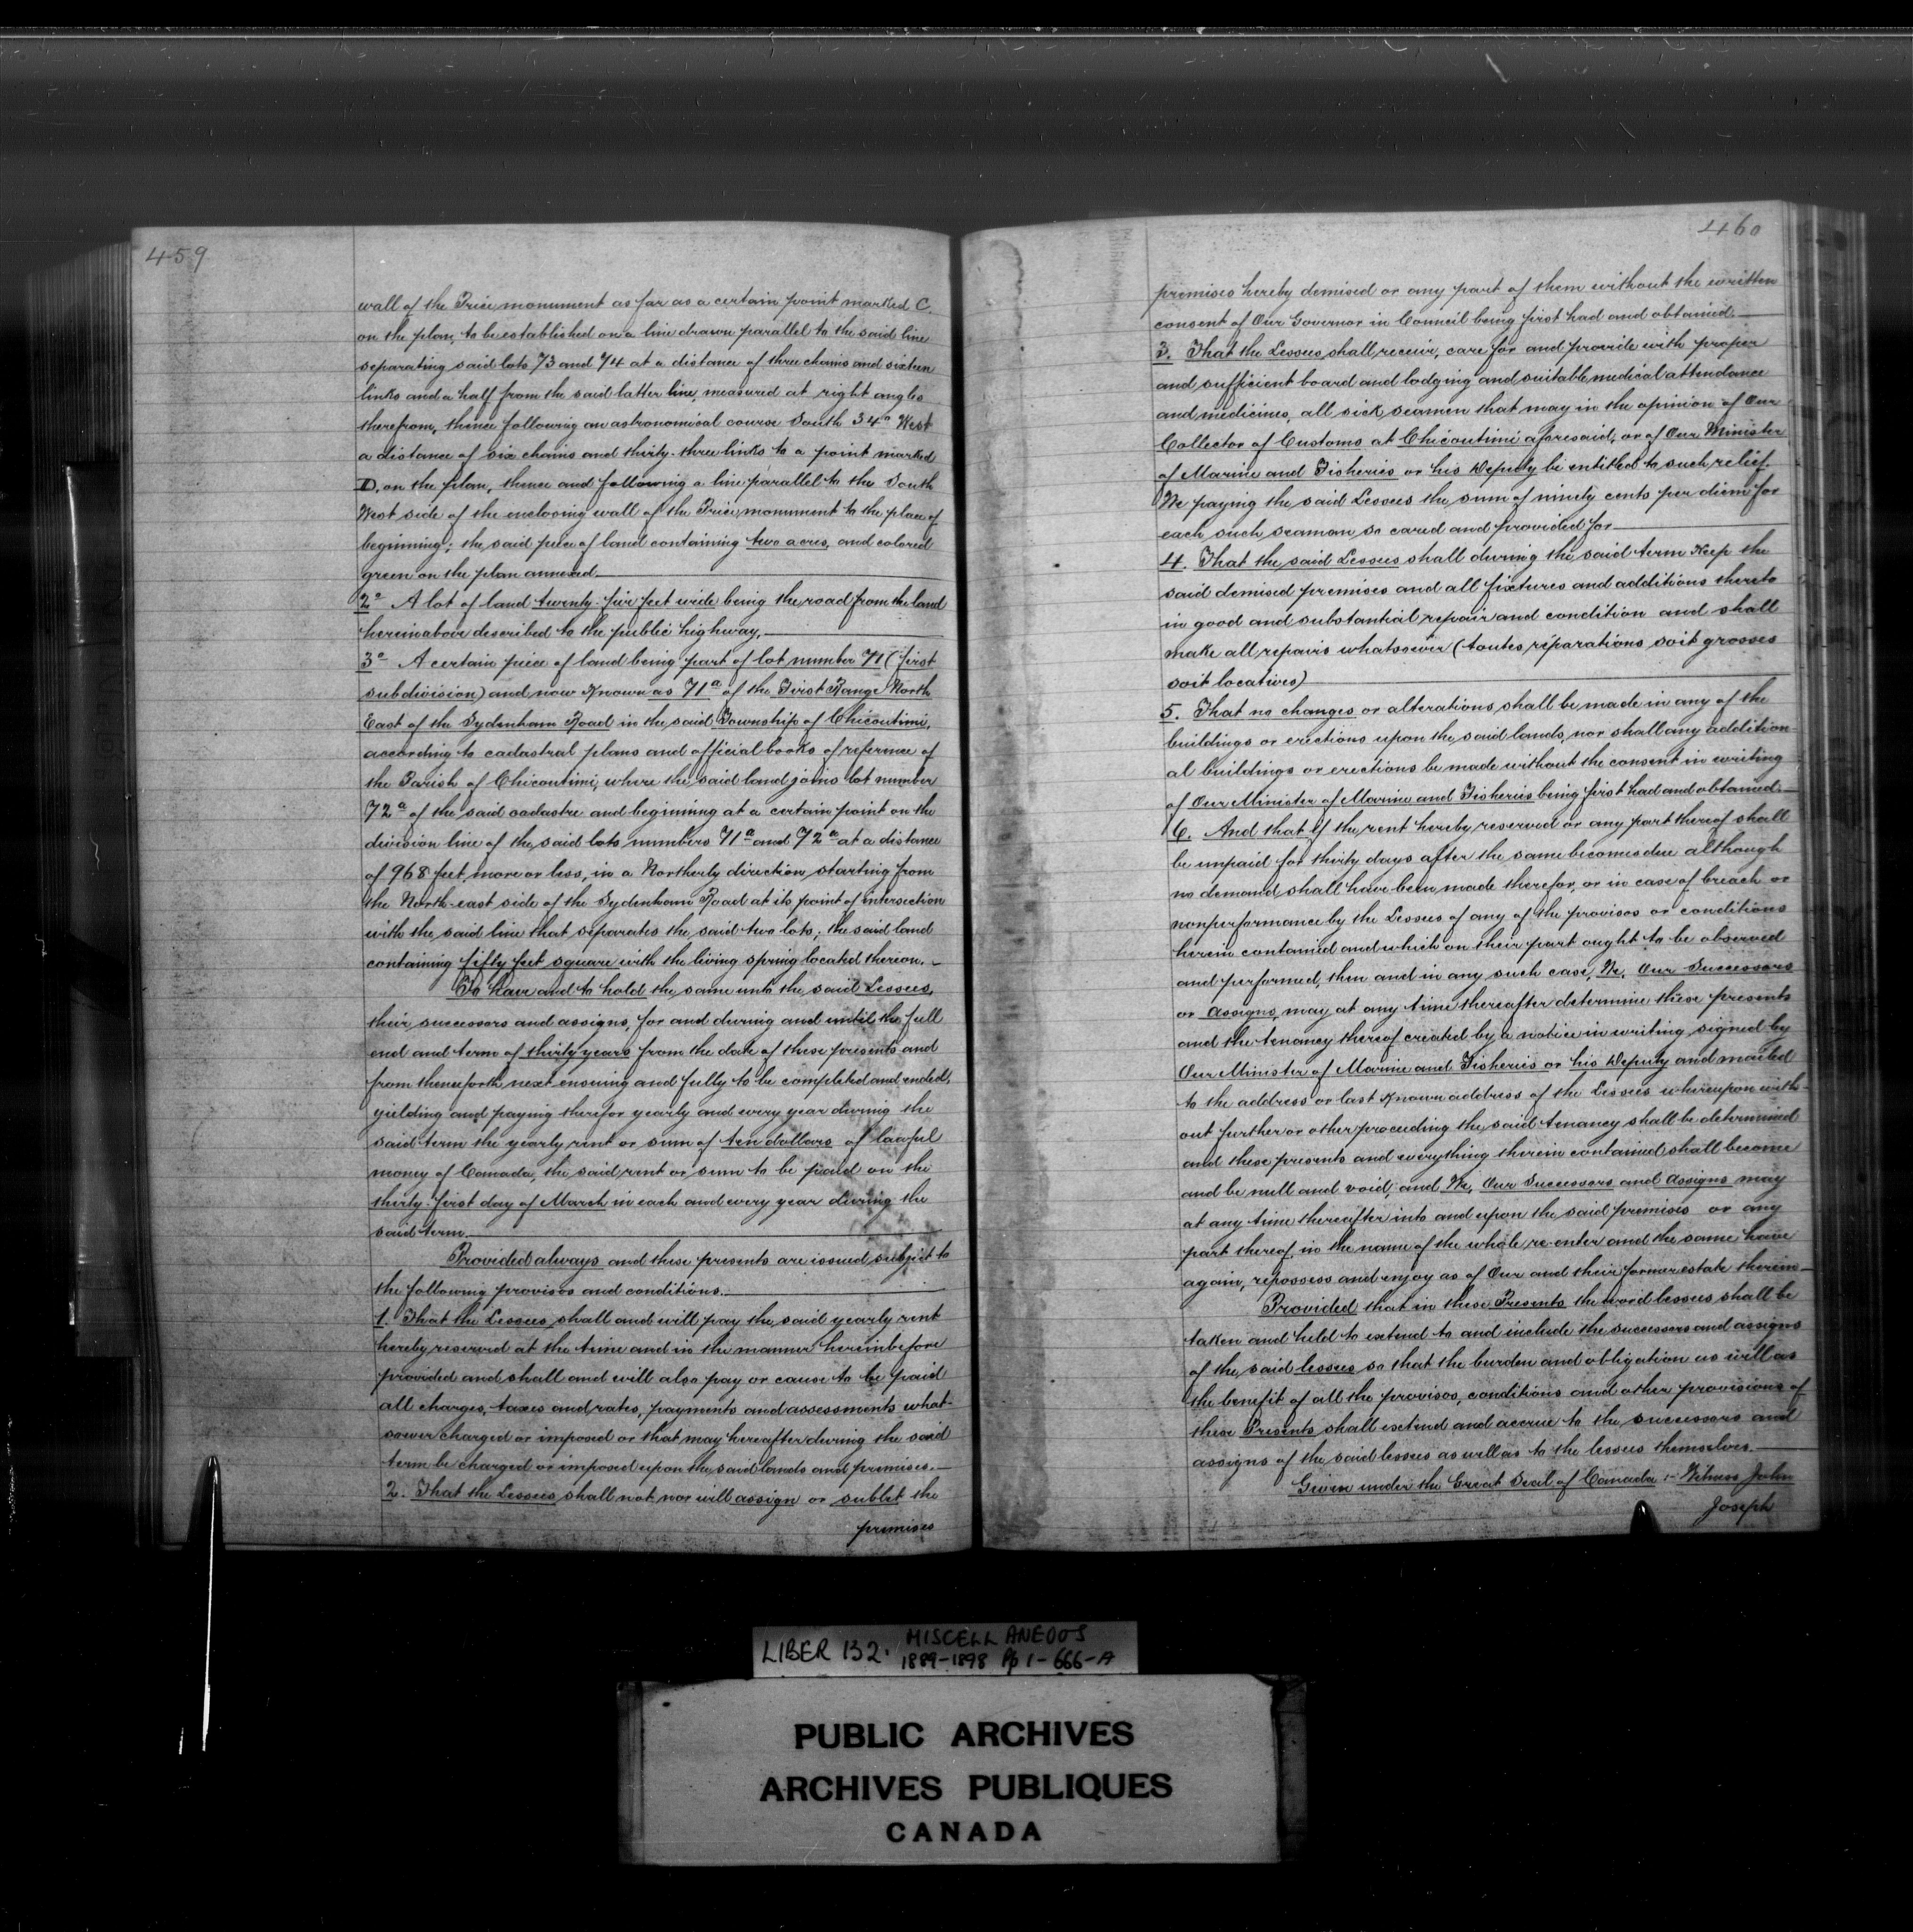 459
wall of the Price monument as far as a certain point marked C.
on the plan, to be established on a line drawn parallel to the said line
separating said lots 73 and 74 at a distance of three chains and sixteen
links and a half from the said latter line, measured at right angles
therefrom, thence following an astronomical course South 34° West
a distance of six chains and thirty-three links to a point marked
D. on the plan, thence and following a line parallel to the South
West side of the enclosing wall of the Price monument to the place of
beginning; the said piece of land containing two acres, and colored
green on the plan annexed.
2° A lot of land twenty-five feet wide being the road from the land
hereinabove described to the public highway.
3° A certain piece of land being part of lot number 71 (first
subdivision) and now Known as 71a of the First Range North
East of the Sydenham Road in the said Township of Chicoutimi,
according to cadastral plans and official books of reference of
the Parish of Chicoutimi, where the said land joins lot number
72a of the said cadastre and beginning at a certain point on the
division line of the said lots numbers 71a and 72a at a distance
of 968 feet, more or less, in a Northerly direction, starting from
the North-east side of the Sydenham Road at its point of intersection
with the said line that separates the said two lots; the said land
containing fifty feet square with the living spring located thereon.
To have and to hold the same unto the said Lessees,
their successors and assigns, for and during and until the full
end and term of thirty years from the date of these presents and
from thenceforth next ensuing and fully to be completed and ended,
yielding and paying therefor yearly and every year during the
said term the yearly rent or sum of ten dollars of lawful
money of Canada, the said rent or sum to be paid on the
thirty-first day of March in each and every year during the
said term.
Provided always and these presents are issued subject to
the following provisos and conditions.
1. That the Lessees shall and will pay the said yearly rent
hereby reserved at the time and in the manner hereinbefore
provided and shall and will also pay or cause to be paid
all charges, taxes and rates, payments and assessments what-
soever charged or imposed or that may hereafter during the said
term be charged or imposed upon the said lands and premises.
2. That the Lessees shall not nor will assign or sublet the
premises
460
premises hereby demised or any part of them without the written
consent of Our Governor in Council being first had and obtained.
3. That the Lessees shall receive, care for and provide with proper
and sufficient board and lodging and suitable medical attendance
and medicines, all sick seamen that may in the opinion of Our
Collector of Customs at Chicoutimi aforesaid, or of Our Minister
of Marine and Fisheries or his Deputy be entitled to such relief.
We paying the said Lessees the sum of ninety cents per diem for
each such seaman so cared and provided for
4. That the said Lessees shall during the said term Keep the
said demised premises and all fixtures and additions thereto
in good and substantial repair and condition and shall
make all repairs whatsoever (toutes réparations soit grosses
soit locatives)
5. That no changes or alterations shall be made in any of the
buildings or erections upon the said lands, nor shall any addition-
al buildings or erections be made without the consent in writing
of Our Minister of Marine and Fisheries being first had and obtained.
6. And that if the rent hereby reserved or any part thereof shall
be unpaid for thirty days after the same becomes due although
no demand shall have been made therefor, or in case of breach or
nonperformance by the Lessees of any of the provisos or conditions
herein contained and which on their part ought to be observed
and performed, then and in any such case, We, Our Successors
or assigns, may at any time thereafter determine these presents
and the tenancy thereof created by a notice in writing signed by
Our Minister of Marine and Fisheries or his Deputy and mailed
to the address or last Known address of the Lessees whereupon with-
out further or other proceeding the said tenancy shall be determined
and these presents and everything therein contained shall become
and be null and void; and We, Our Successors and Assigns may
at any time thereafter into and upon the said premises or any
part thereof, in the name of the whole re-enter and the same have
again, repossess and enjoy as of Our and their former estate therein
Provided that in these Presents the word lessees shall be
taken and held to extend to and include the successors and assigns
of the said lessees so that the burden and obligation as well as
the benefit of all the provisos, conditions and other provisions of
these Presents shall extend and accrue to the successors and
assigns of the said lessees as well as to the lessees themselves.
Given under the Great Seal of Canada :- Witness John
Joseph
LIBER 132. MISCELLANEOUS
1889-1898 Pp 1-666-A
PUBLIC ARCHIVES
ARCHIVES PUBLIQUES
CANADA